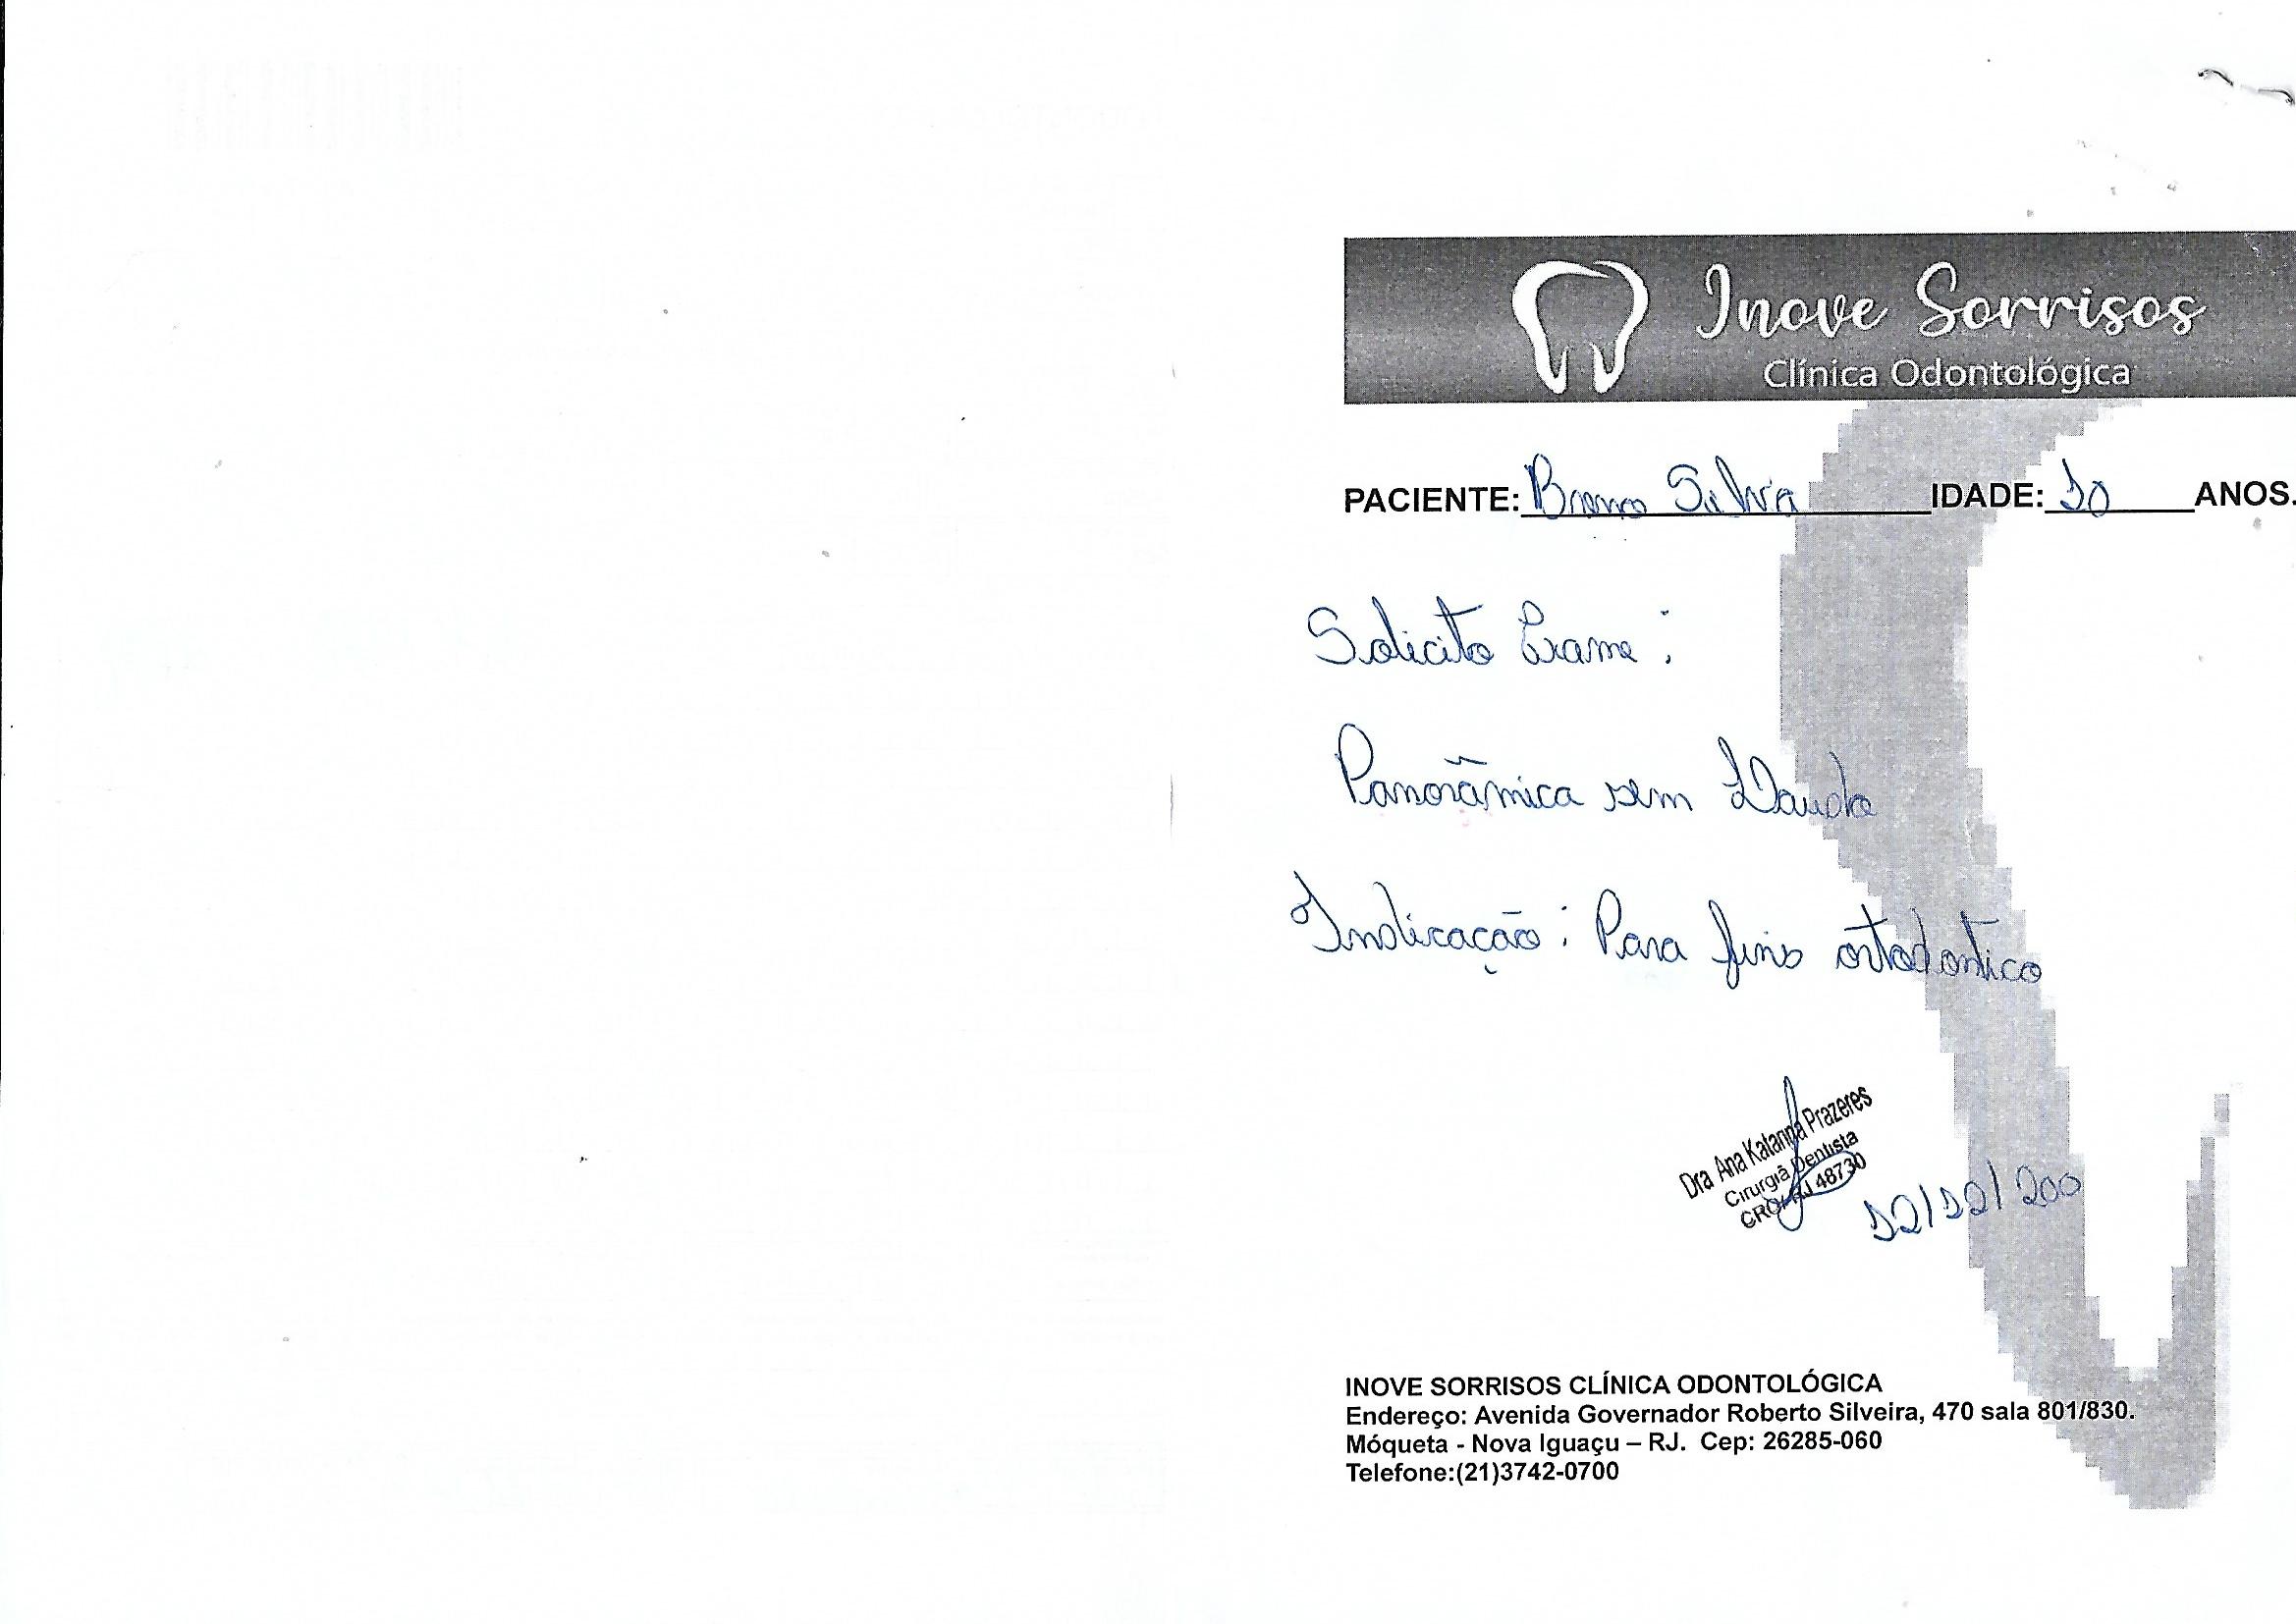 Inove Sorrisos
Clínica Odontológica
PACIENTE: Bruno Silva IDADE: 10 ANOS.
Solicito Exame :
Panorâmica sem Laudo
Indicação : Para fins ortodontico
Dra Ana Katanna Prazeres
Cirurgiã Dentista
CRO RJ 48730
12/12/200
INOVE SORRISOS CLÍNICA ODONTOLÓGICA
Endereço: Avenida Governador Roberto Silveira, 470 sala 801/830.
Móqueta - Nova Iguaçu – RJ. Cep: 26285-060
Telefone:(21)3742-0700